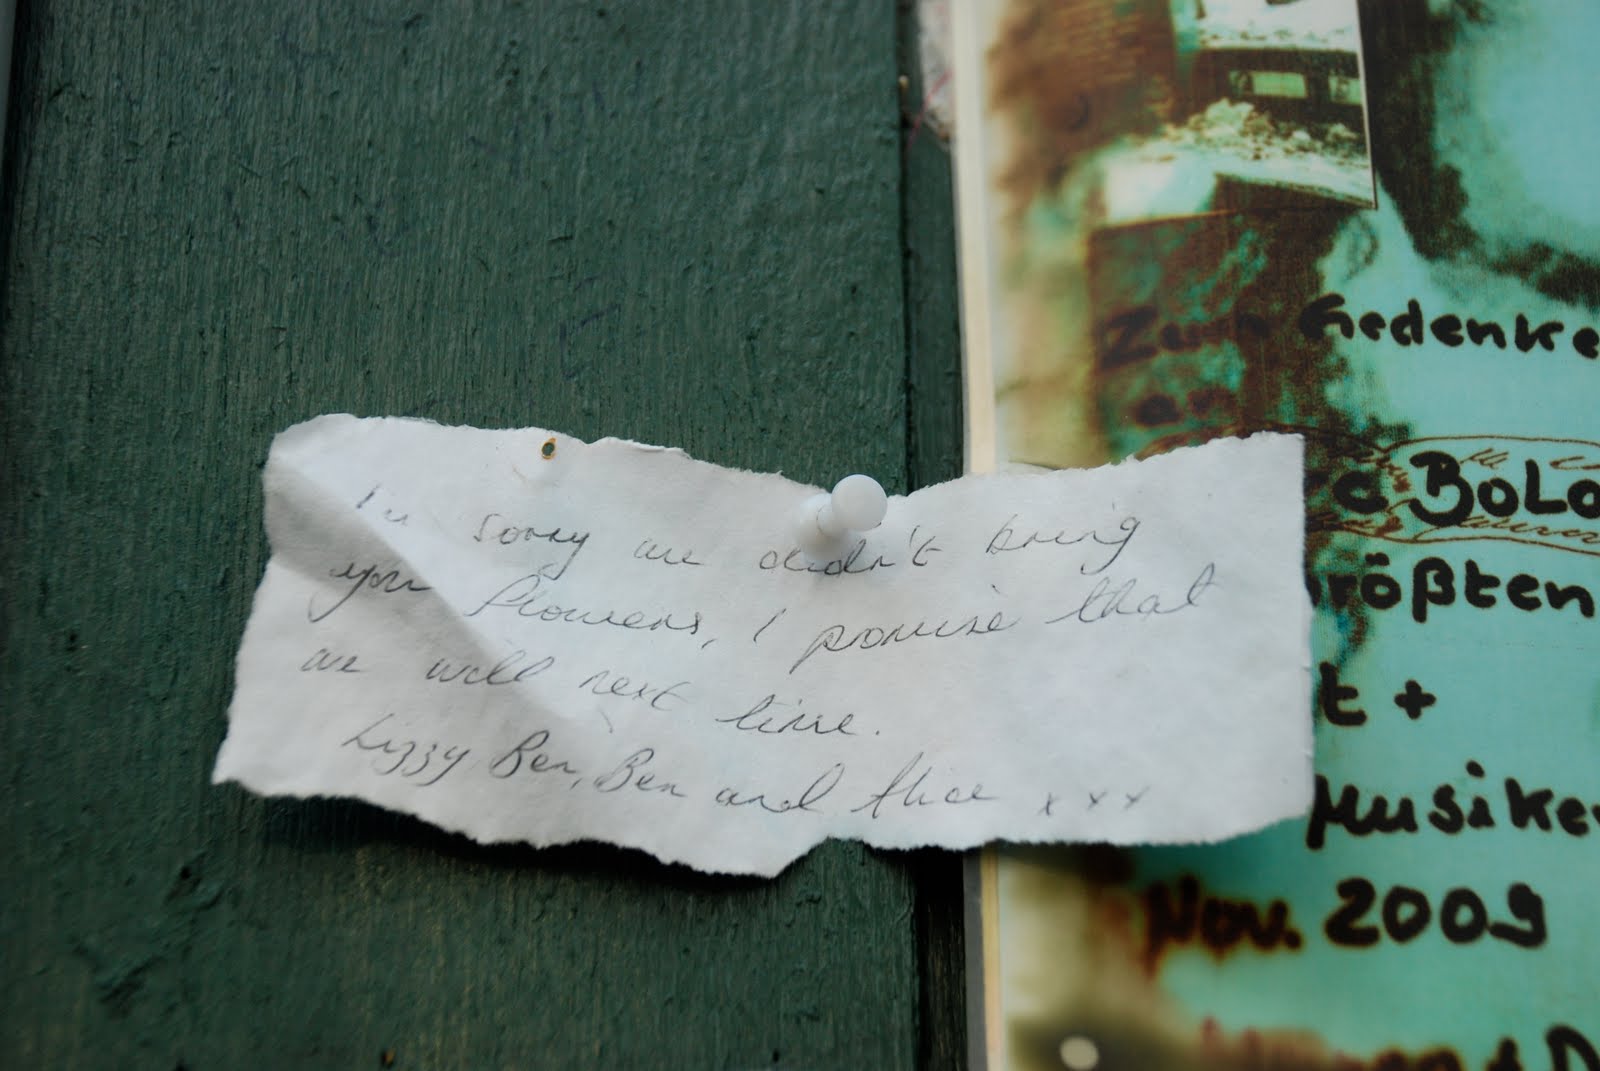 I'm sorry we didn't bring
you flowers, I promise that
we will next time.
Lizzy Ben, Ben and Alice x x x
Zum Gedenke
c BOLO
rößten
t +
Musike
Nov. 2009